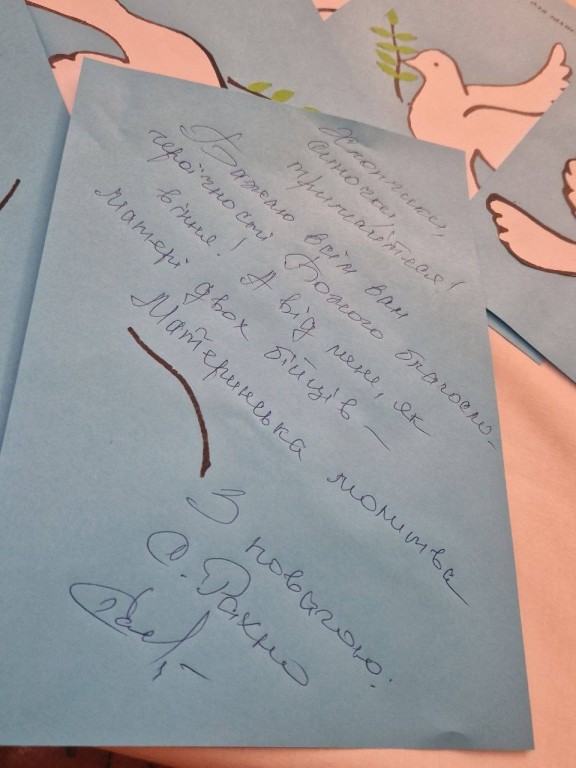 Хлопчики,
синочки,
тримайтеся!
Бажаю всім вам
героїчності Божого благосло-
віння! А від мене, як
матері двох бійців –
Материнська молитва
З повагою.
О. Рахно